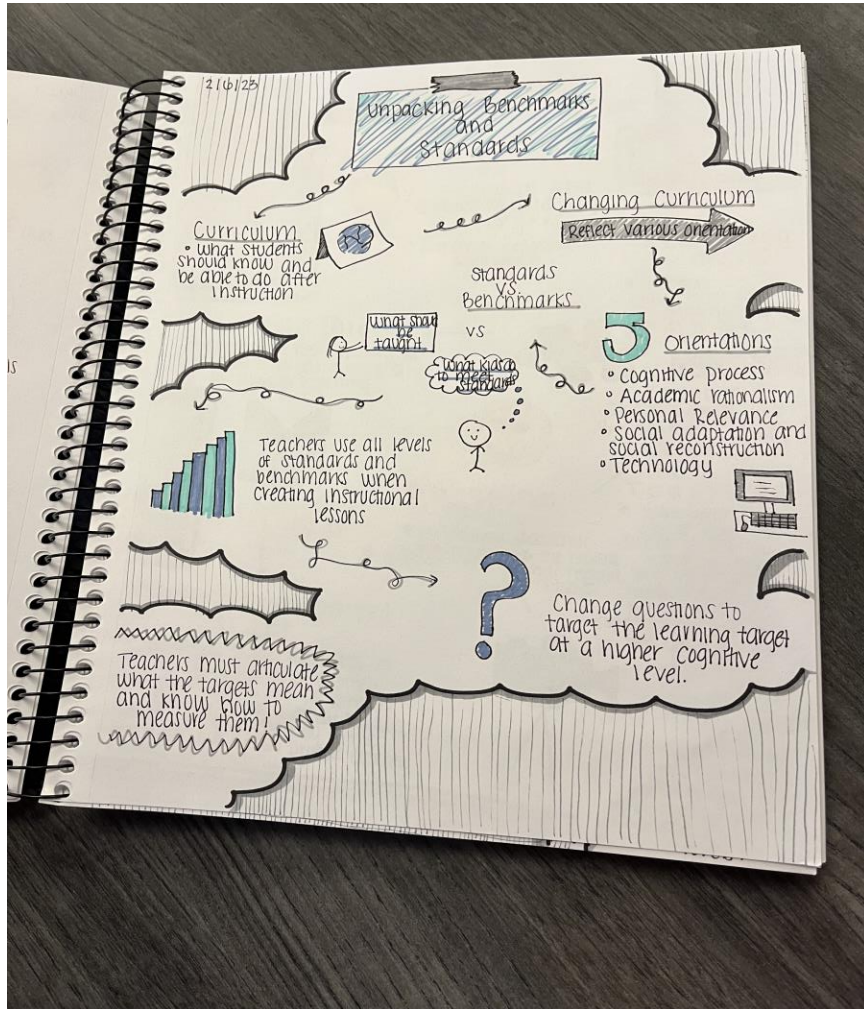 2/6/23
Unpacking Benchmarks
and
Standards
Curriculum
• what students
should know and
be able to do after
instruction
Changing Curriculum
Reflect various orientation
Standards
vs
Benchmarks
what shoul
be
taught
vs
What kids do
to meet
standards
5 orientations
• Cognitive process
• Academic rationalism
• Personal Relevance
• Social adaptation and
social reconstruction
• Technology
Teachers use all levels
of standards and
benchmarks when
creating instructional
lessons
?
Change questions to
target the learning target
at a higher cognitive
level.
Teachers must articulate
what the targets mean
and know how to
measure them!